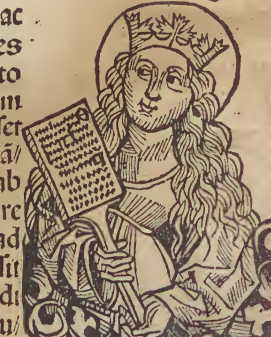 ac
es
to
um
set
ā/
ab
re
ad
sit
di
u/